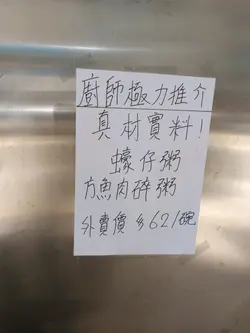 廚師極力推介
真材實料！
蠔仔粥
方魚肉碎粥
外賣價 $62/碗